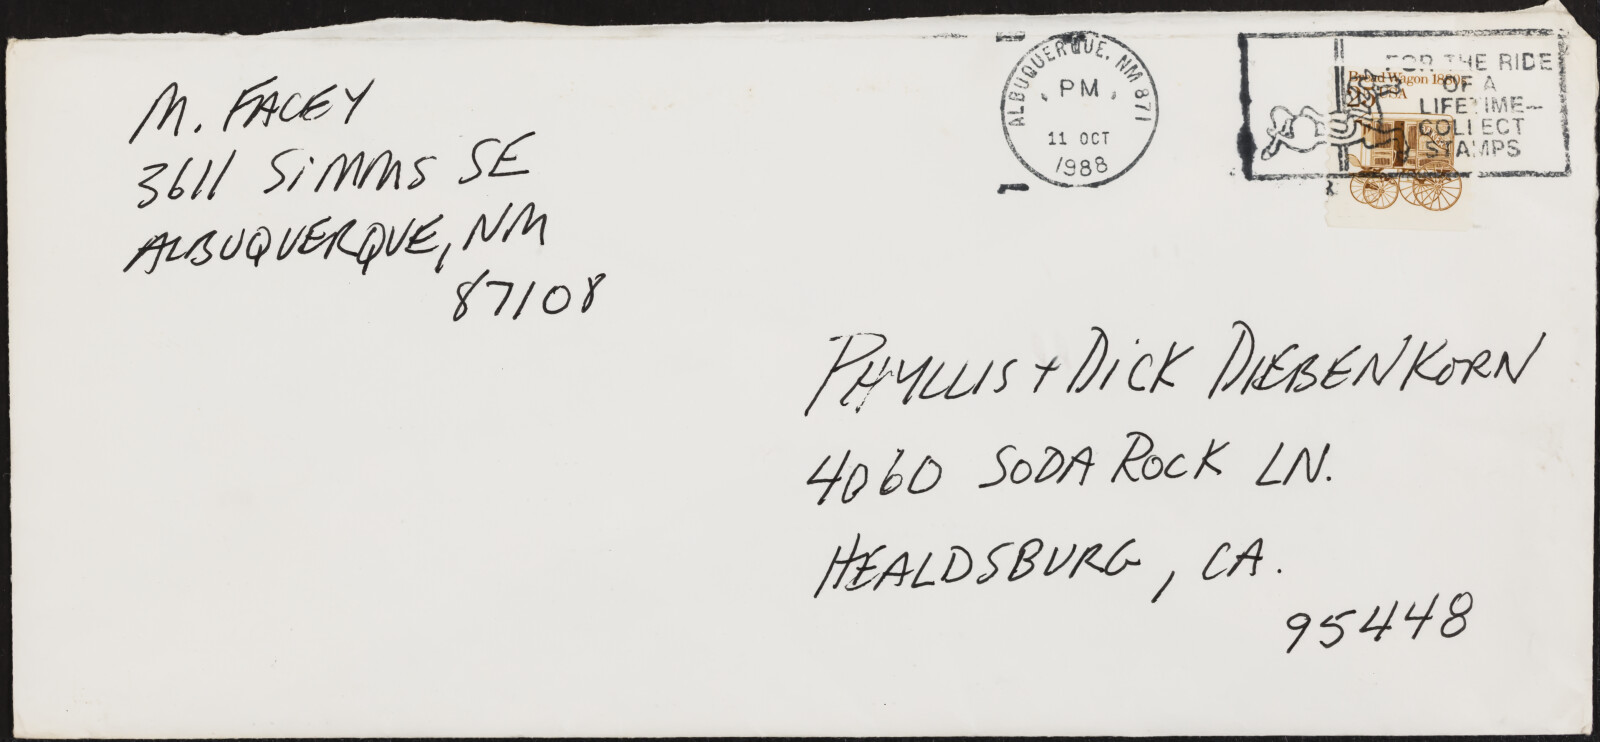 M. FACEY
3611 SIMMS SE
ALBUQUERQUE, NM
87108
ALBUQUERQUE, NM 871
PM
11 OCT
1988
FOR THE RIDE
OF A
LIFETIME—
COLLECT
STAMPS
Bread Wagon 1880s
25 USA
PHYLLIS + DICK DIEBENKORN
4060 SODA ROCK LN.
HEALDSBURG, CA.
95448